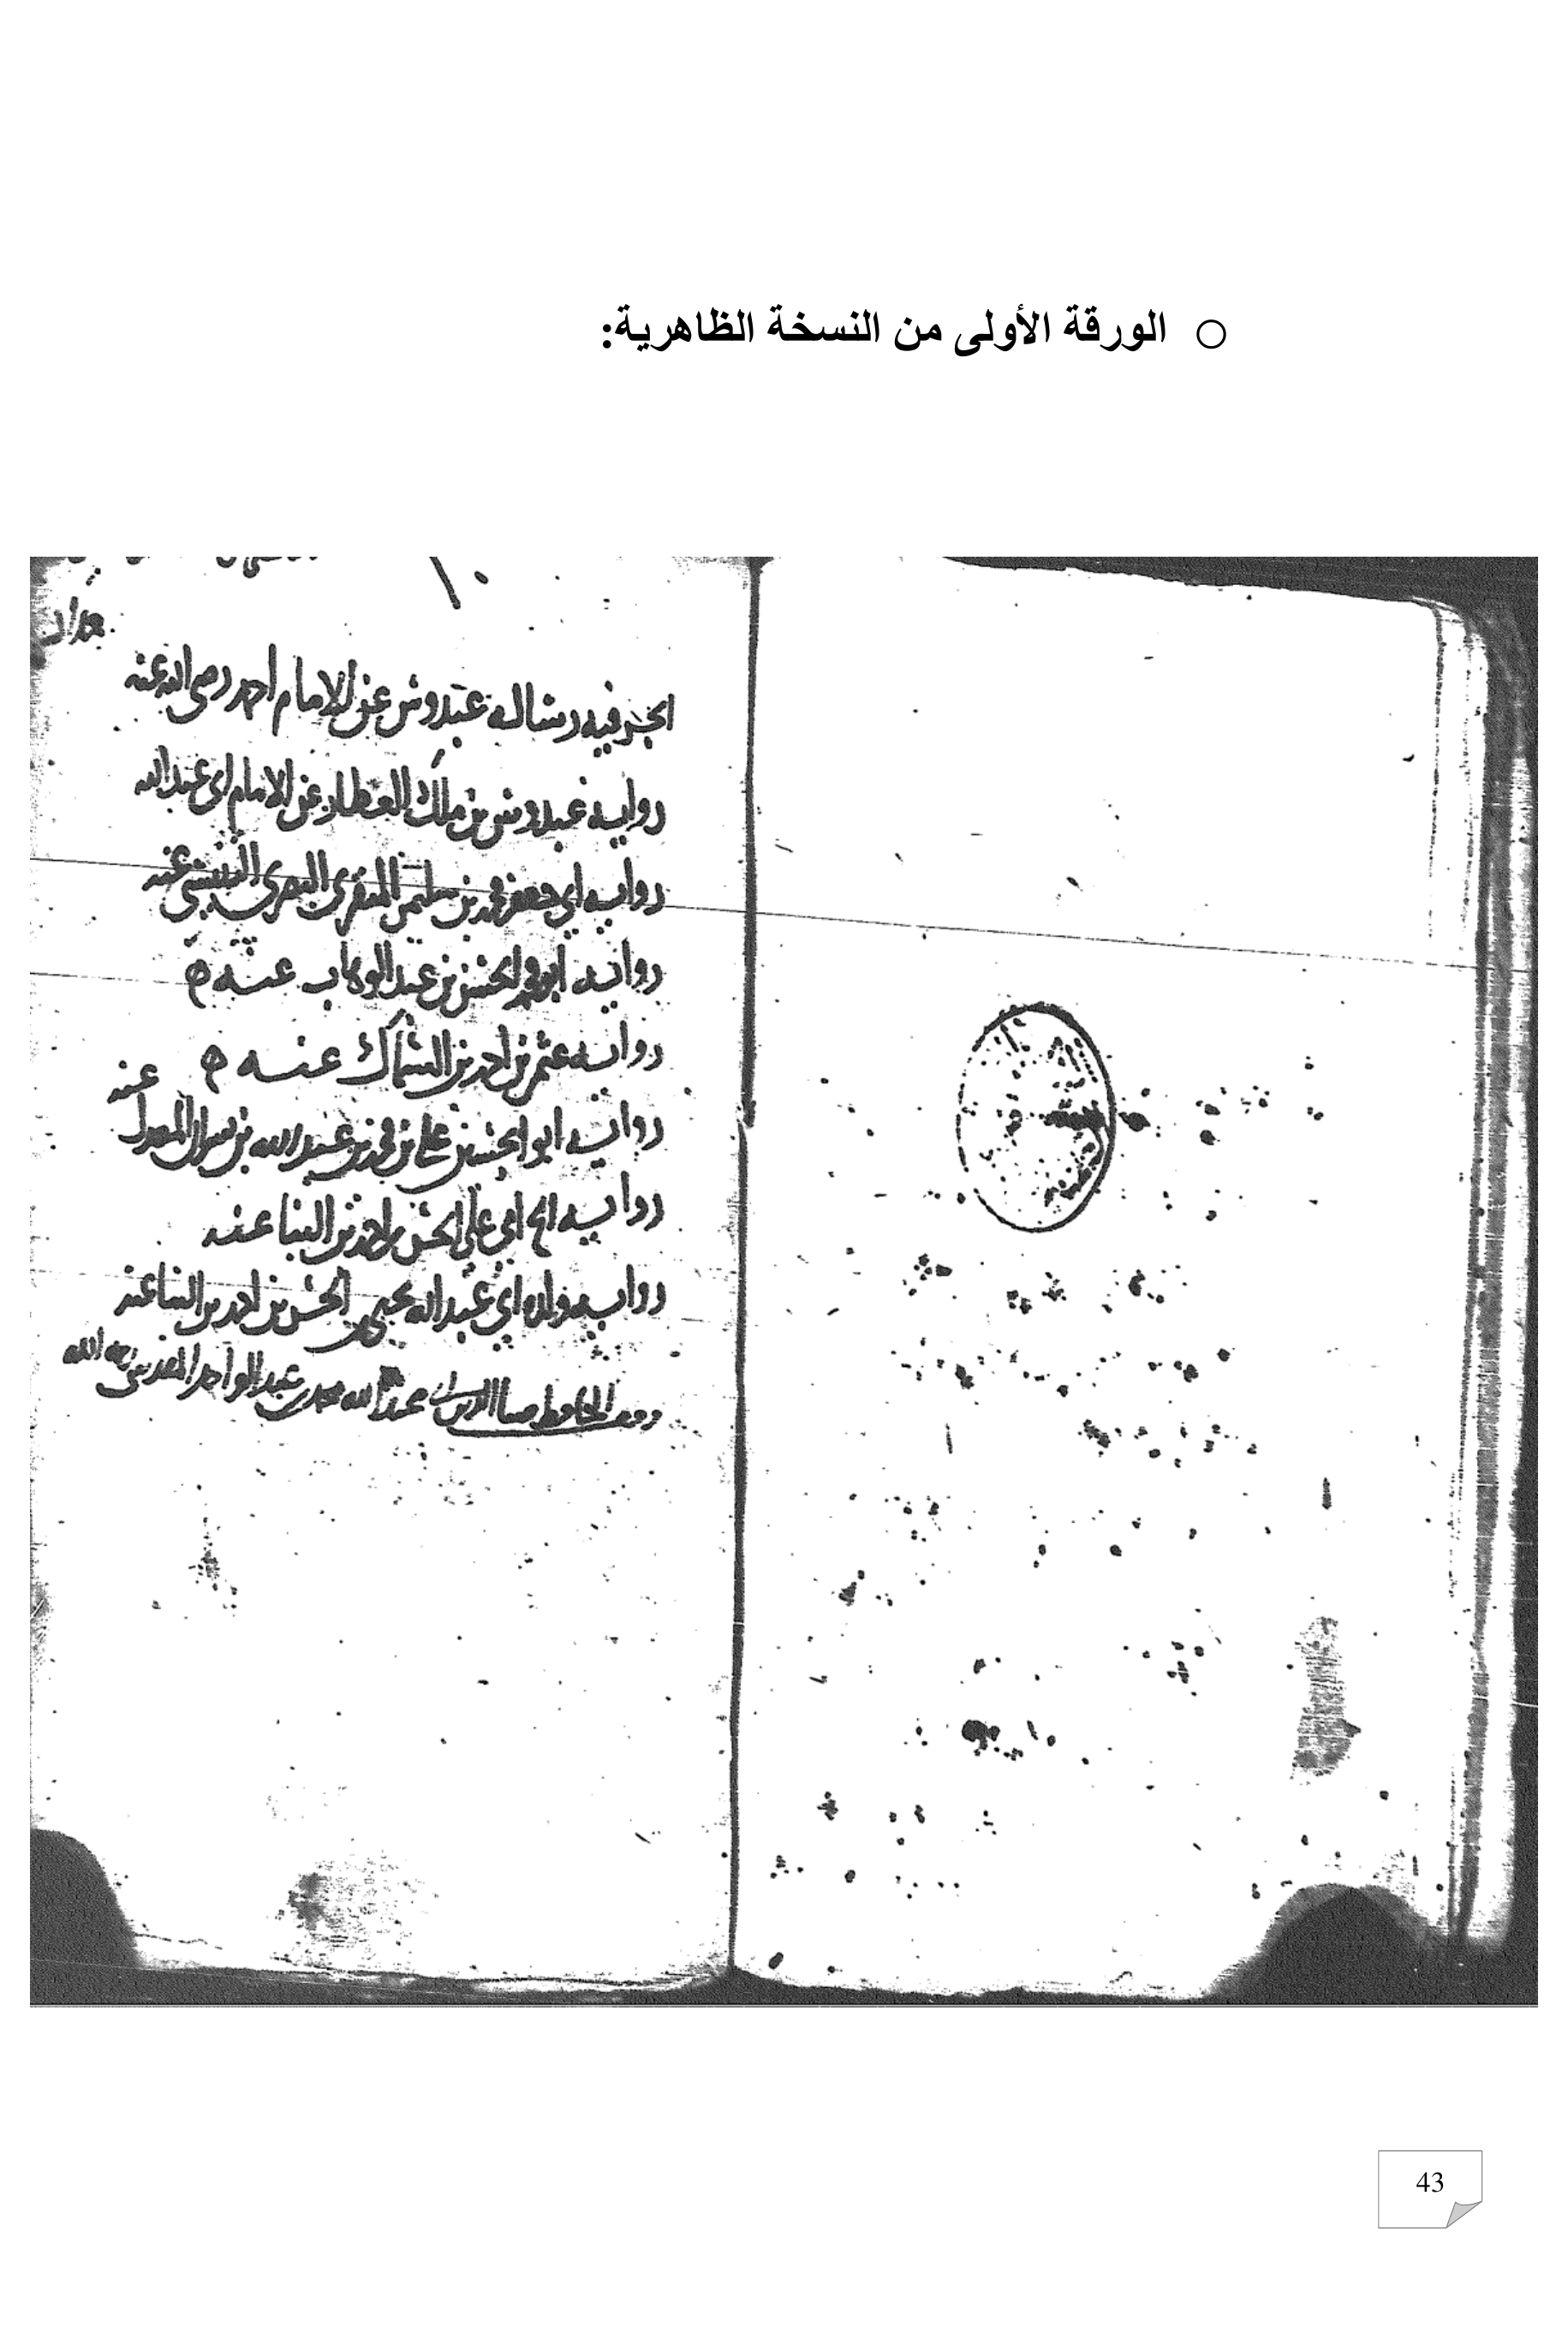 ○ الورقة الأولى من النسخة الظاهرية:
الجز فيه رسالة عبدوس عن الامام احمد رضي الله عنه
رواية عبدوس بن ملك العطار عن الامام ابي عبد الله
رواية ابي جعفر محمد بن سليمن المنقري البصري التنيسي عنه
رواية ابو محمد الحسن بن عبد الوهاب عنه
رواية عثمن بن احمد بن السماك عنه
رواية ابو الحسين علي بن محمد بن عبد الله بن بشران المعدل عنه
رواية ابي علي الحسن بن احمد بن البنا عنه
رواية ولده ابي عبد الله يحيى بن الحسن بن احمد بن البنا عنه
وقف الحافظ ضيا الدين عبد الله محمد بن عبد الواحد المقدسي رحمه الله
43